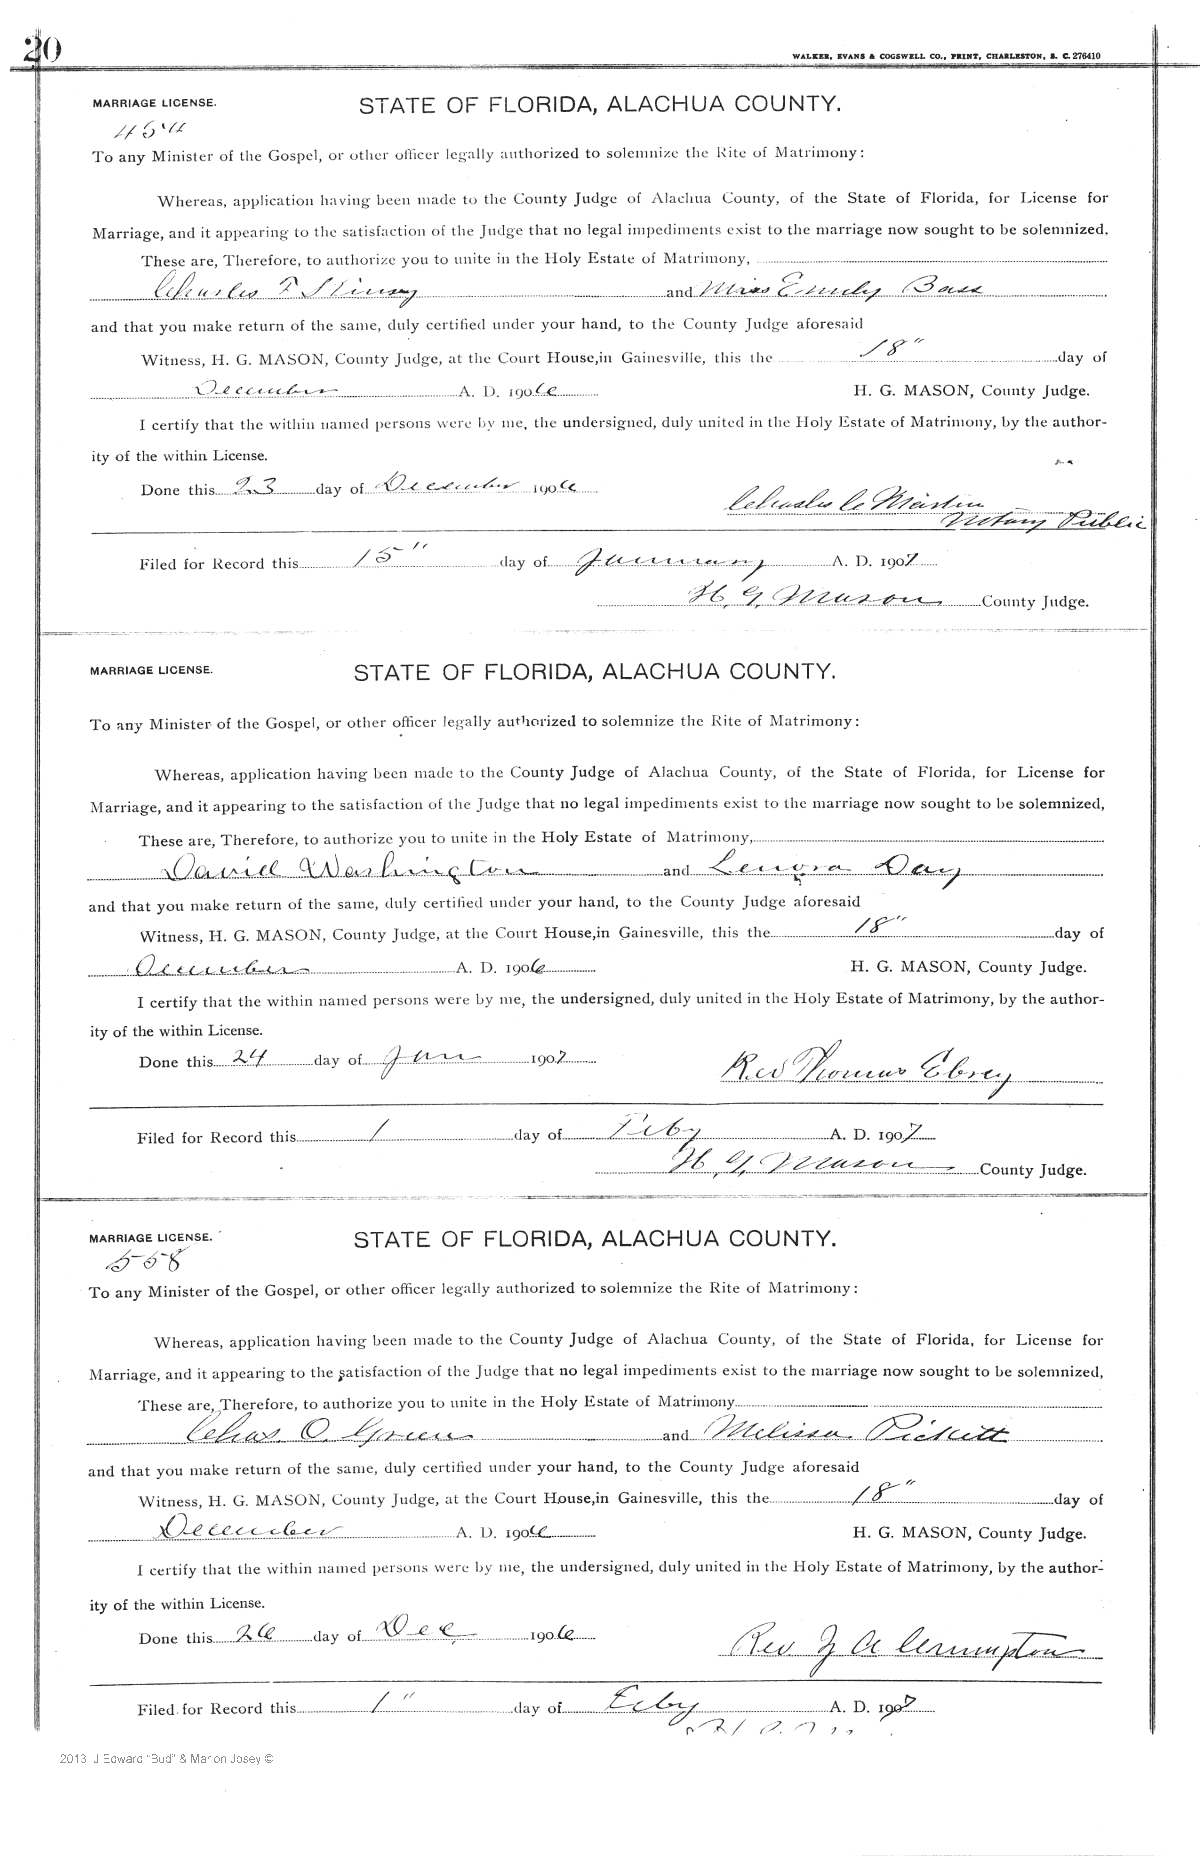 20
WALKER, EVANS & COGSWELL CO., PRINT, CHARLESTON, S. C. 276410
MARRIAGE LICENSE. STATE OF FLORIDA, ALACHUA COUNTY.
454
To any Minister of the Gospel, or other officer legally authorized to solemnize the Rite of Matrimony:
Whereas, application having been made to the County Judge of Alachua County, of the State of Florida, for License for
Marriage, and it appearing to the satisfaction of the Judge that no legal impediments exist to the marriage now sought to be solemnized,
These are, Therefore, to authorize you to unite in the Holy Estate of Matrimony,
Charles F Skinsy and Miss Emily Bass
and that you make return of the same, duly certified under your hand, to the County Judge aforesaid
Witness, H. G. MASON, County Judge, at the Court House, in Gainesville, this the 18" day of
December A. D. 1906 H. G. MASON, County Judge.
I certify that the within named persons were by me, the undersigned, duly united in the Holy Estate of Matrimony, by the author-
ity of the within License.
Done this 23 day of December 1906
Charles C Martin
Notary Public
Filed for Record this 15" day of January A. D. 1907
H. G. Mason County Judge.
MARRIAGE LICENSE. STATE OF FLORIDA, ALACHUA COUNTY.
To any Minister of the Gospel, or other officer legally authorized to solemnize the Rite of Matrimony:
Whereas, application having been made to the County Judge of Alachua County, of the State of Florida, for License for
Marriage, and it appearing to the satisfaction of the Judge that no legal impediments exist to the marriage now sought to be solemnized,
These are, Therefore, to authorize you to unite in the Holy Estate of Matrimony,
David Washington and Lenora Day
and that you make return of the same, duly certified under your hand, to the County Judge aforesaid
Witness, H. G. MASON, County Judge, at the Court House, in Gainesville, this the 18" day of
December A. D. 1906 H. G. MASON, County Judge.
I certify that the within named persons were by me, the undersigned, duly united in the Holy Estate of Matrimony, by the author-
ity of the within License.
Done this 24 day of Jan 1907
Rev Thomas Ebrey
Filed for Record this 1 day of Feby A. D. 1907
H. G. Mason County Judge.
MARRIAGE LICENSE. STATE OF FLORIDA, ALACHUA COUNTY.
558
To any Minister of the Gospel, or other officer legally authorized to solemnize the Rite of Matrimony:
Whereas, application having been made to the County Judge of Alachua County, of the State of Florida, for License for
Marriage, and it appearing to the satisfaction of the Judge that no legal impediments exist to the marriage now sought to be solemnized,
These are, Therefore, to authorize you to unite in the Holy Estate of Matrimony
Chas. O. Green and Melissa Pickett
and that you make return of the same, duly certified under your hand, to the County Judge aforesaid
Witness, H. G. MASON, County Judge, at the Court House, in Gainesville, this the 18" day of
December A. D. 1906 H. G. MASON, County Judge.
I certify that the within named persons were by me, the undersigned, duly united in the Holy Estate of Matrimony, by the author-
ity of the within License.
Done this 26 day of Dec 1906
Rev. Z A Crumpton
Filed for Record this 1" day of Feby A. D. 1907
2013 J Edward "Bud" & Marion Josey ©